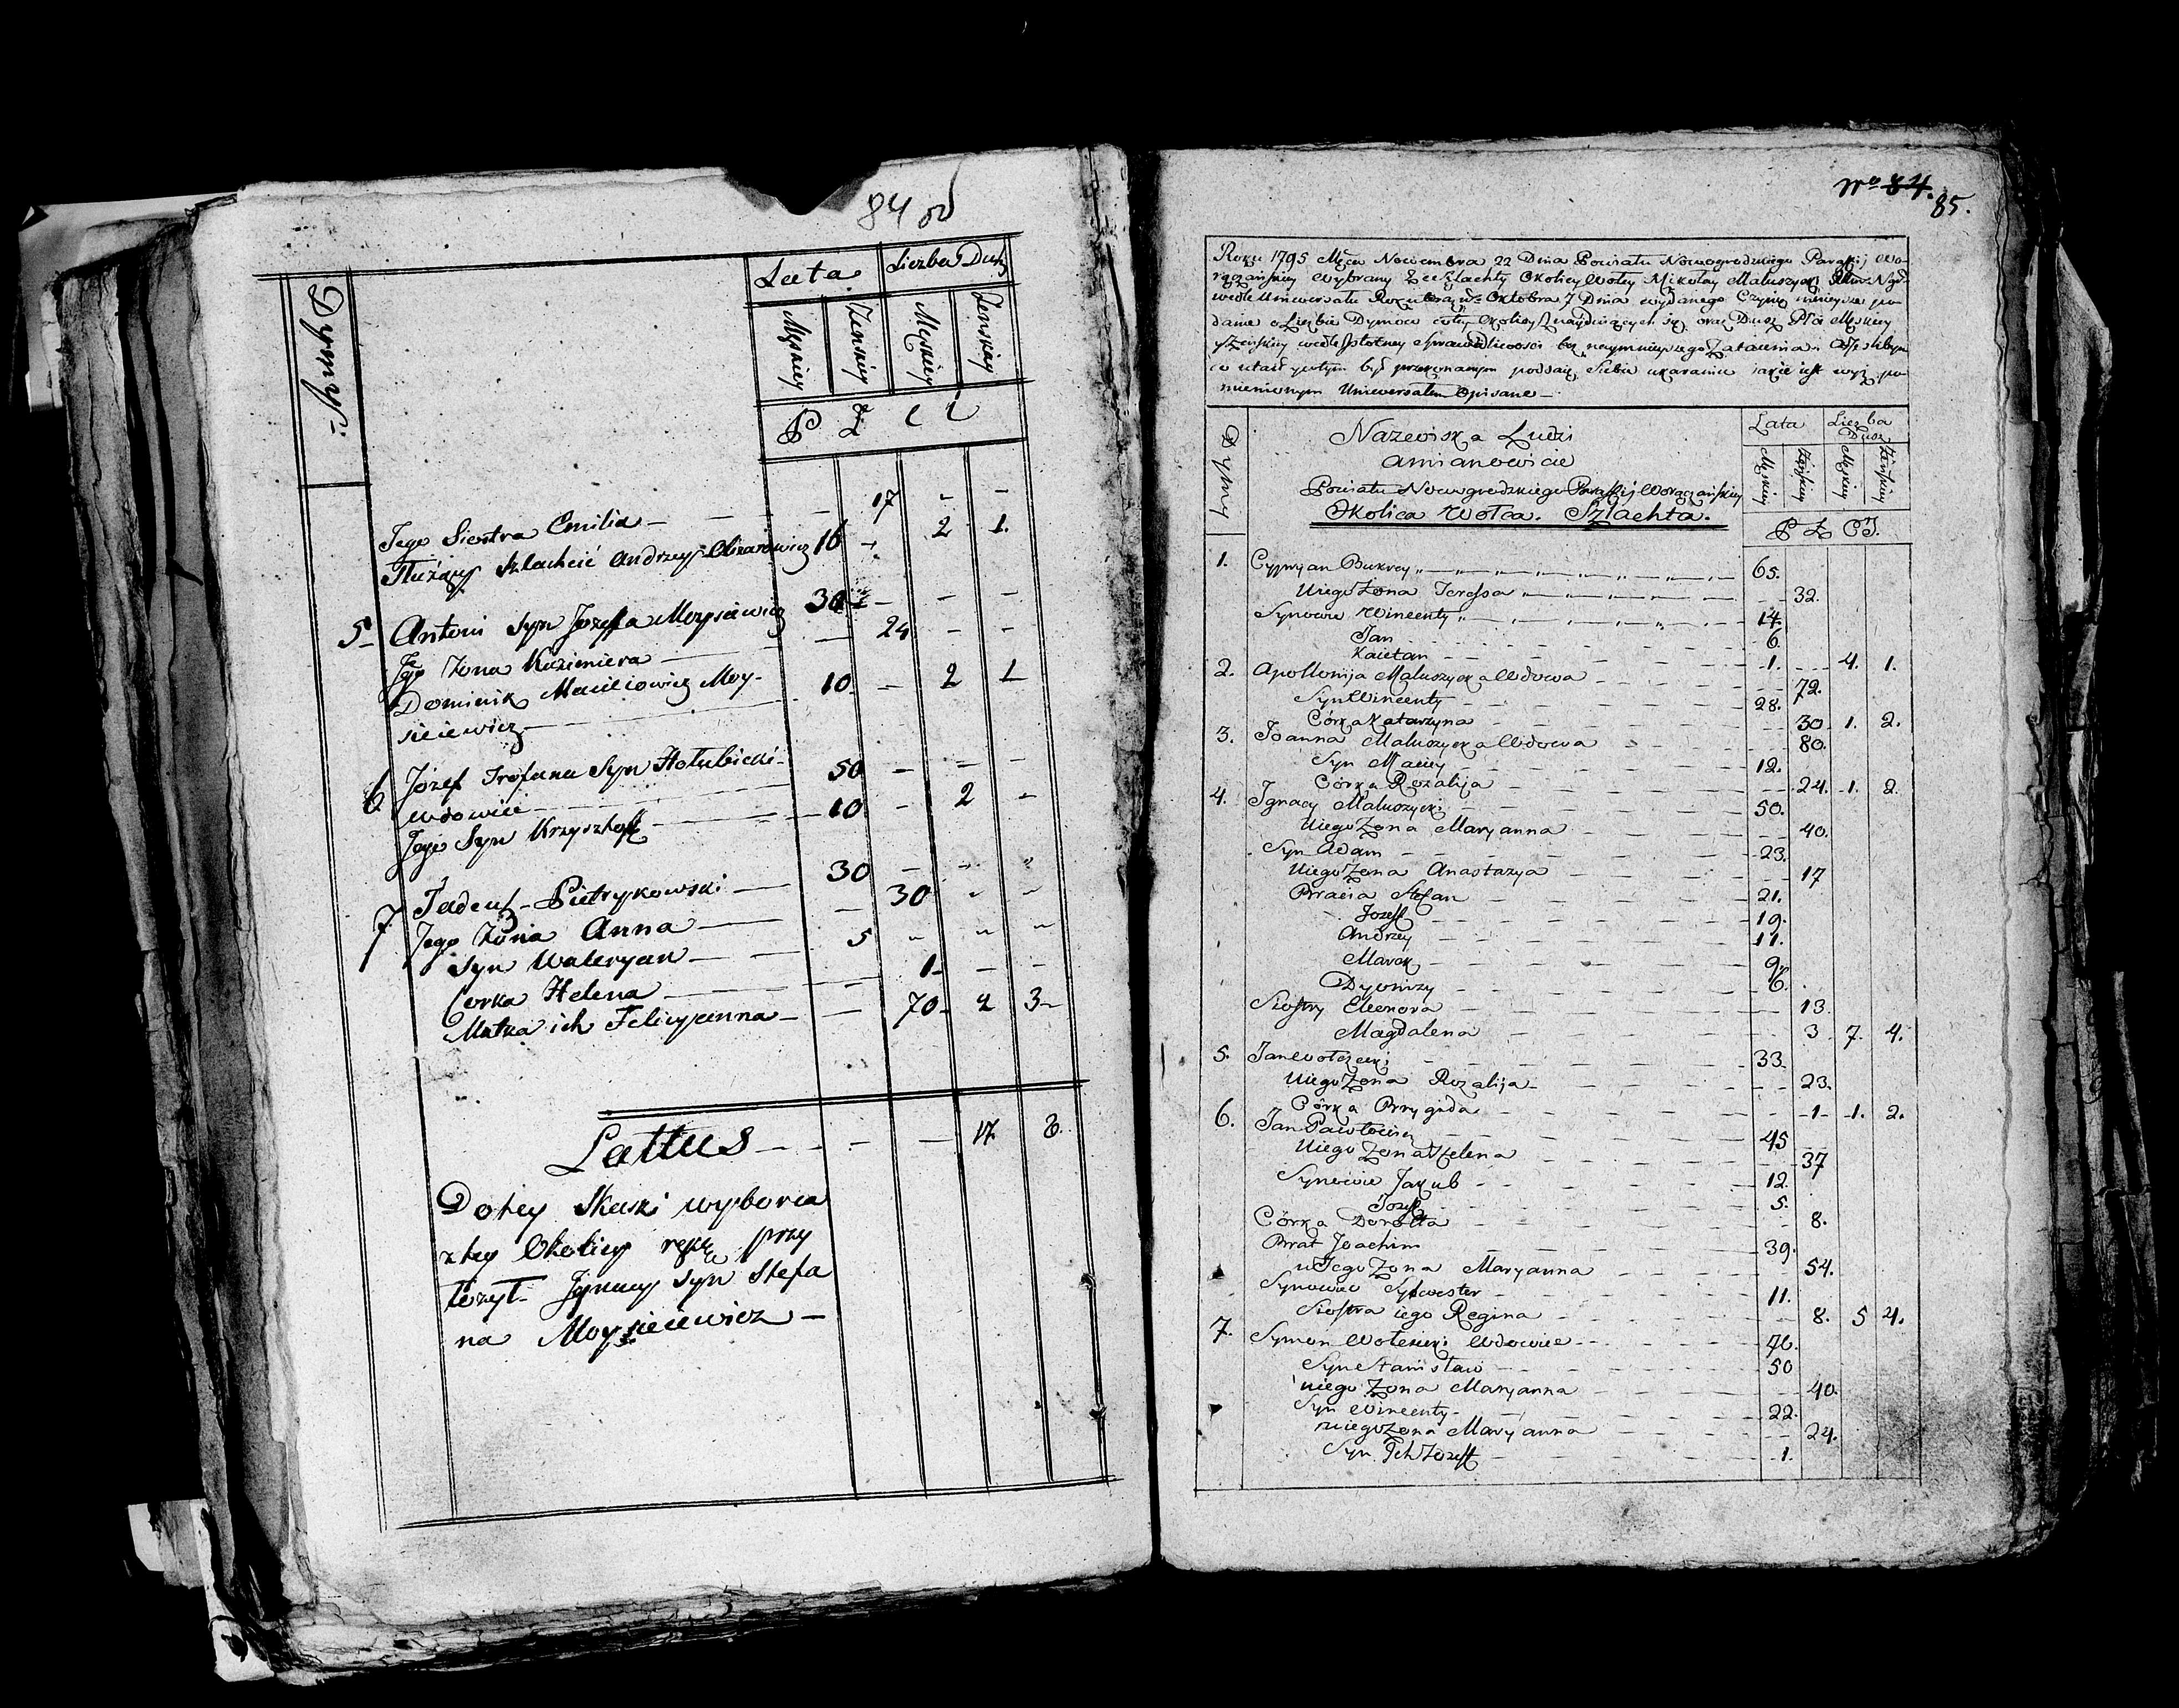 84 od
Dymy
Lata Liczba Dusz
Męskiey Żenskiey Męskiey Zenskiey
P Ł C i
Jego Siostra Emilia — — — 17 - -
Służący szlachcic Andrzey 16 - 2 1.
5 Antoni Syn Jozefa Moysiewicz 30 - - -
Jego Żona Kazimiera — — 24 - -
Dominik Moy-
sieiewicz — 10 - 2 1
6 Józef Syn Hołubicki
wdowiec — 50 - - -
Jego Syn Krzysztoff — 10 - 2 -
7 Tadeusz Pietrykowski — 30 - - "
Jego Żona Anna — — 30 - -
Syn Waleryan — 5 - - -
Corka Helena — — 1 - -
Matka ich Felicyanna — — 70 2 3
Lattus — - - — 17 8.
Do tey Skaski wyborca
z tey Okolicy rękę przy
łożył Jgnacy Syn Stefa
na Moysieiewicz —
No 84. 85.
Roku 1795 Męca Nowembra 22 Dnia Powiatu Nowogrodzkiego Parafij Wo-
rączańskiey Wybrany z Szlachty Okolicy Wołcy Mikołay Małuszycki
wedle Uniwersału Roku teraz. Oktobra 7 Dnia wydanego Czynię ninieysze po-
danie o Liczbie Dymow w tey Okolicy znayduiących się oraz Dusz Płci Męskiey
y Żeńskiey wedle istotney sprawiedliwości bez naymnieyszego Zataienia
przekonanym poddaię Siebie ukaraniu iakie iest wyż po-
mienionym Uniwersałem Opisane —
Dymy
Nazwiska Ludzi
a mianowicie
Powiatu Nowogrodzkiego Parafij Worączańskiey
Okolica Wołca. Szlachta.
Lata Liczba Dusz
Męskiey Żeńskiey Męskiey Żeńskiey
P Ł C I.
1. Cypryan Bukrey 65.
U iego Żona Teressa 32.
Synowie Wincenty 14.
Jan 6
Kaietan 1. 4. 1.
2. Apollonija Małuszycka Wdowa 72.
Syn Wincenty 28.
Córka Katarzyna 30 1. 2.
3. Joanna Małuszycka Wdowa 80.
Syn Maciey 12.
Córka Rozalija 24. 1. 2.
4. Jgnacy Małuszycki 50.
U iego Żona Maryanna 40.
Syn Adam 23.
U iego Żona Anastazya 17
Bracia Stefan 21.
Jozeff 19.
Andrzey 11.
Marek 9.
Dyonizy 6.
Siostry Eleonora 13.
Magdalena 3 7. 4.
5. Jan Wołczecki 33.
U iego Żona Rozalija 23.
Córka Brygida 1 1. 2.
6. Jan 45
U iego Żona Helena 37
Synowie Jakub 12.
Jozeff 5.
Córka Dorotta 8.
Brat Joachim 39.
u Jego Żona Maryanna 54.
Synowiec Sylwester 11.
Siostra iego Regina 8. 5 4.
7. Symon Wołczecki Wdowiec 76.
Syn Stanisław 50
u iego Żona Maryanna 40.
Syn Wincenty 22.
u iego Żona Maryanna 24.
Syn Jch Jozeff 1.